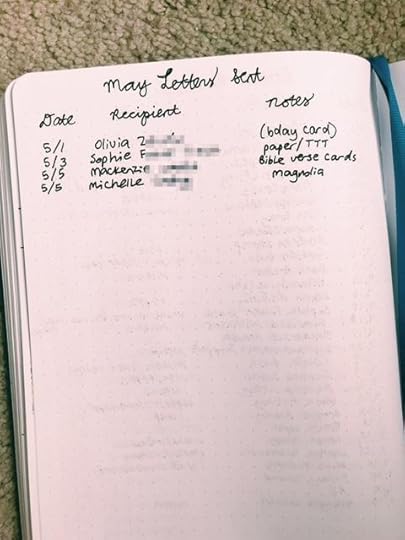 May Letters Sent
Date Recipient Notes
5/1 Olivia Z (bday card)
5/3 Sophie F paper/TTT
5/5 Mackenzie Bible verse cards
5/5 Michelle magnolia